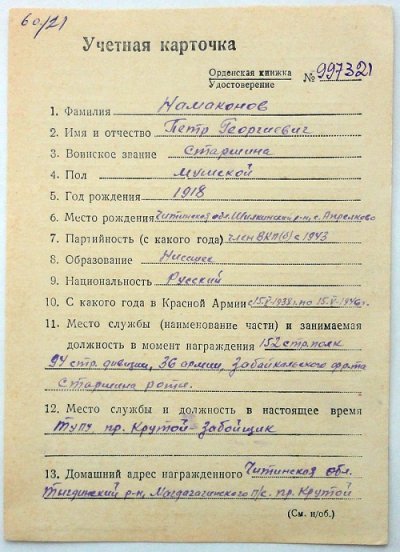 60/21
Учетная карточка
Орденская книжка
Удостоверение № 997321
1. Фамилия Номоконов
2. Имя и отчество Петр Георгиевич
3. Воинское звание Старшина
4. Пол мужской
5. Год рождения 1918
6. Место рождения Читинская обл. Шилкинский р-н, с. Апрелково
7. Партийность (с какого года) член ВКП(б) с 1943
8. Образование Низшее
9. Национальность Русский
10. С какого года в Красной Армии с 15.X-1938г. по 15.V-1946г.
11. Место службы (наименование части) и занимаемая
должность в момент награждения 152 стр. полк
94 стр. дивизии, 36 армии, Забайкальского фронта
Старшина роты.
12. Место службы и должность в настоящее время
пр. Крутой - Забойщик
13. Домашний адрес награжденного Читинская обл.
Тыгдинский р-н, Магдагачинского п/с. пр. Крутой
(См. н/об.)